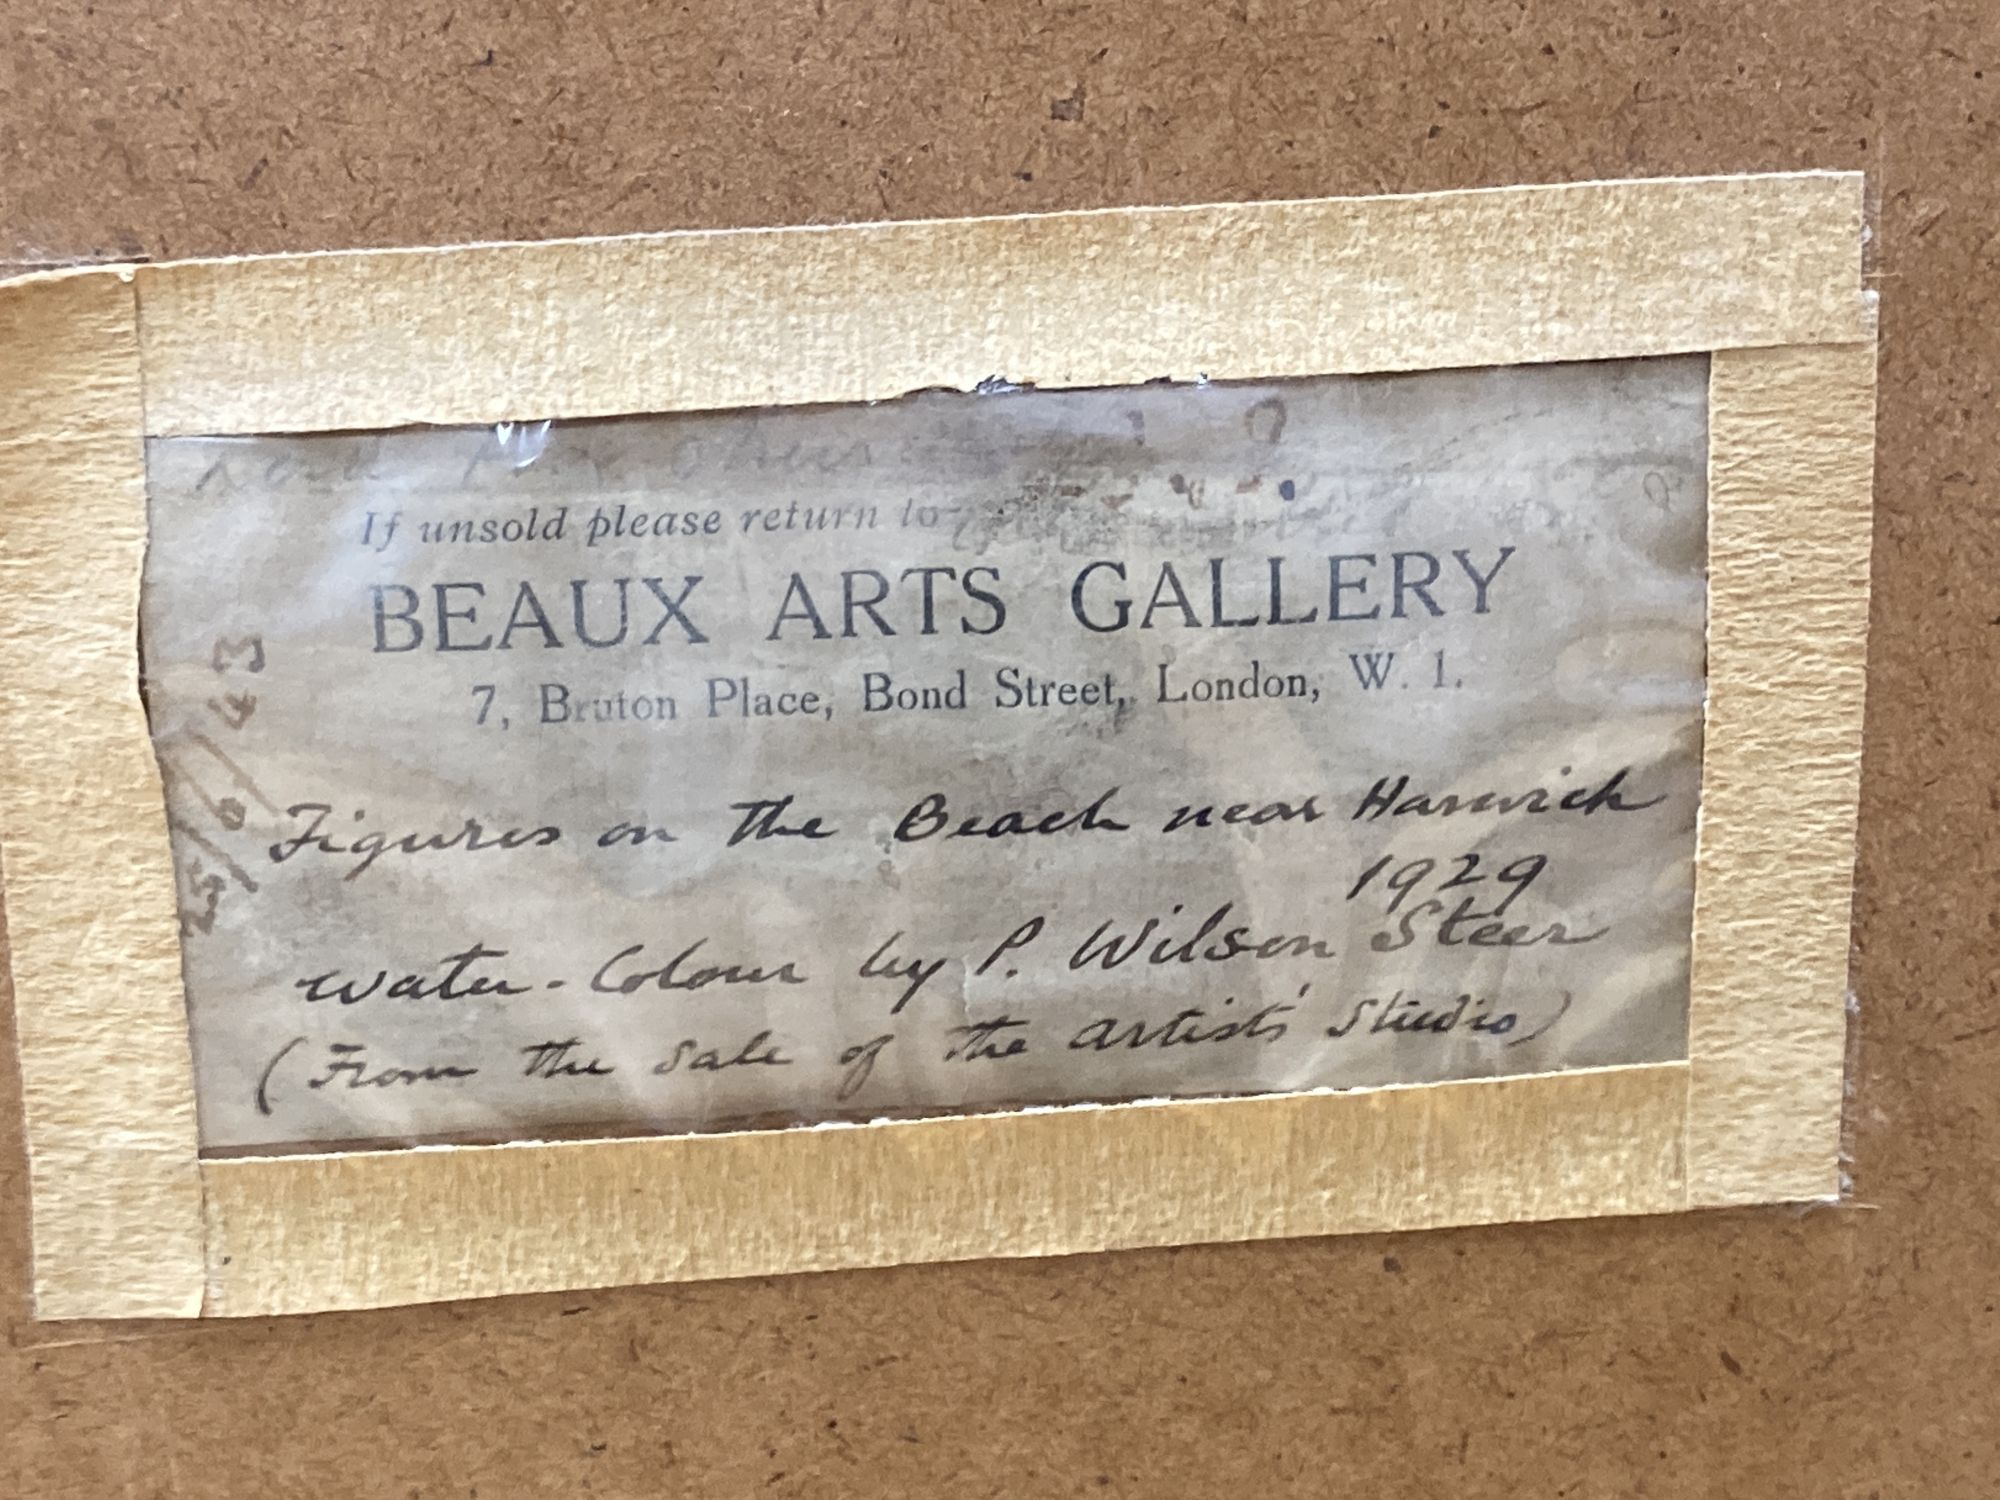 If unsold please return to
BEAUX ARTS GALLERY
7, Bruton Place, Bond Street, London, W. 1.
Figures on the Beach near Harwich
1929
Water-Colour by P. Wilson Steer
(From the Sale of the artists' Studio)